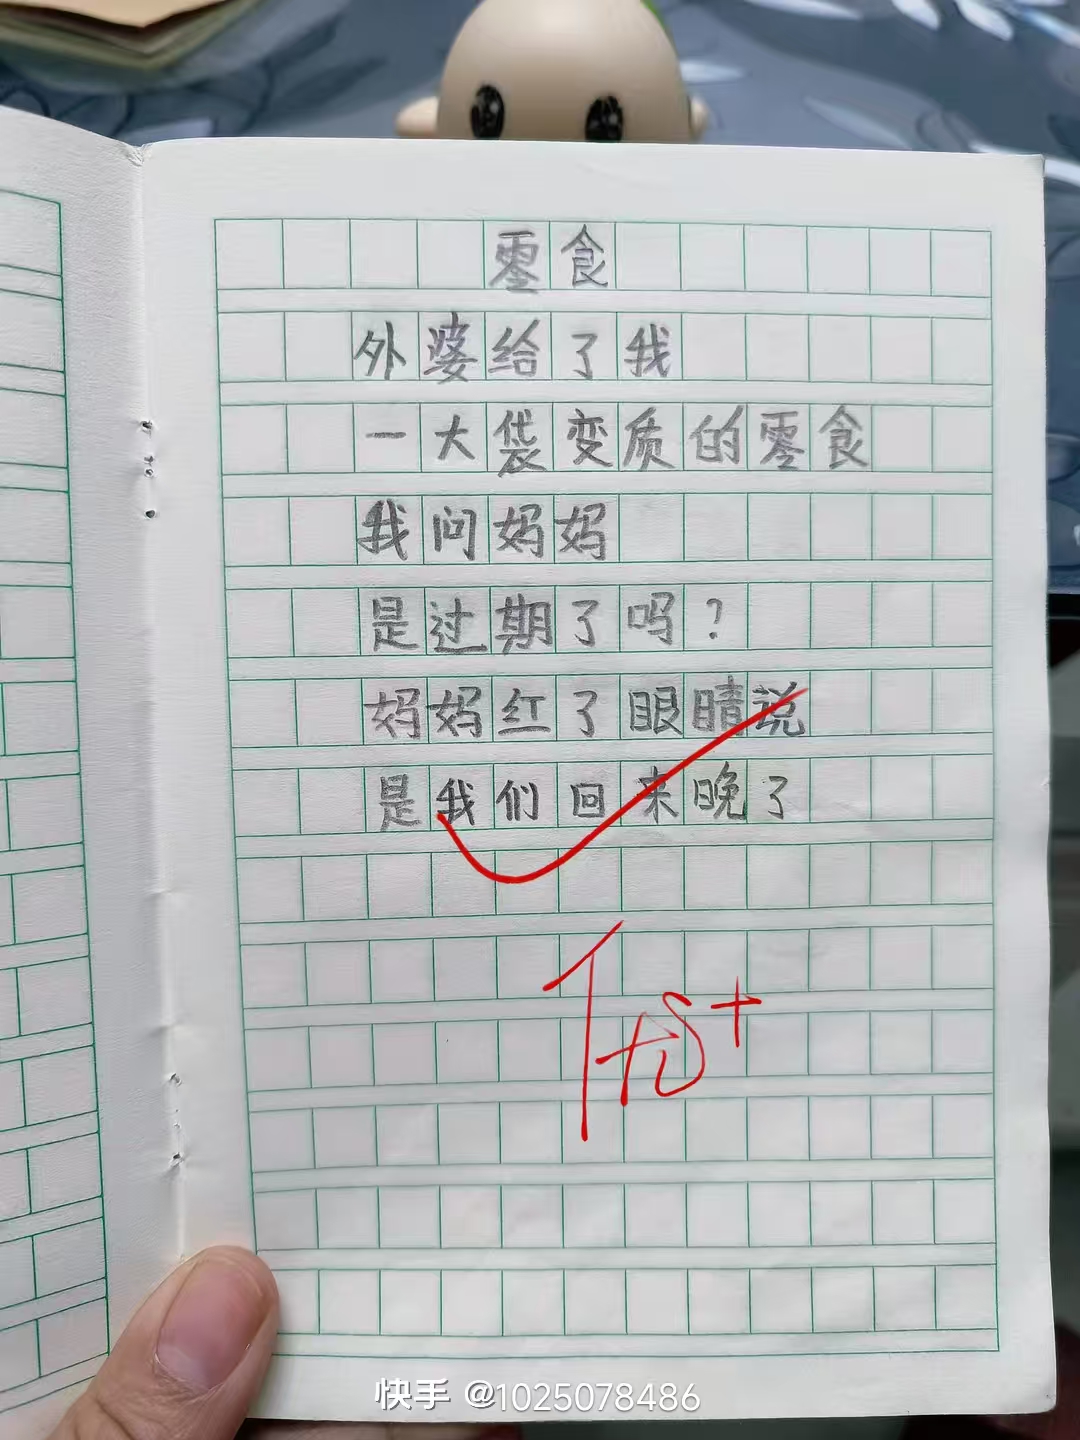 零食
外婆给了我
一大袋变质的零食
我问妈妈
是过期了吗？
妈妈红了眼睛说
是我们回来晚了
快手 @1025078486